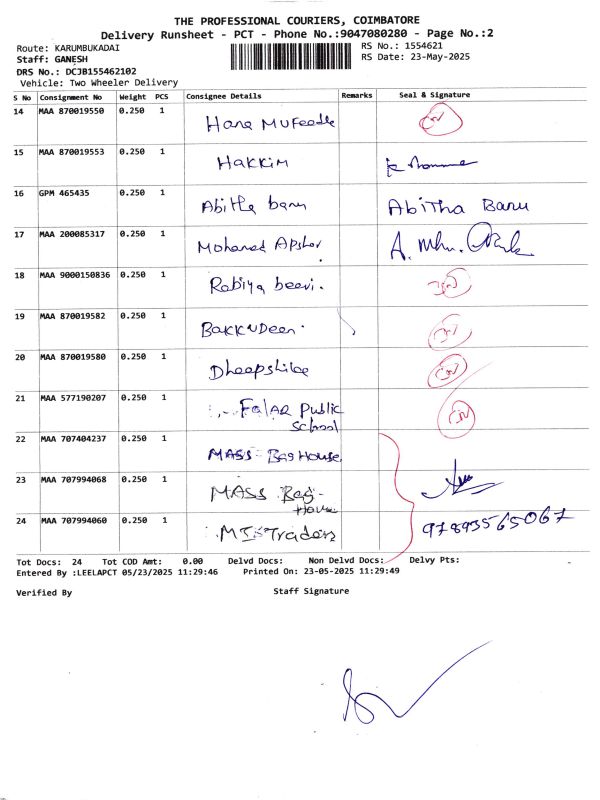 THE PROFESSIONAL COURIERS, COIMBATORE
Delivery Runsheet - PCT - Phone No.:9047080280 - Page No.:2
Route: KARUMBUKADAI RS No.: 1554621
Staff: GANESH RS Date: 23-May-2025
DRS No.: DCJB155462102
Vehicle: Two Wheeler Delivery
S No Consignment No Weight PCS Consignee Details Remarks Seal & Signature
14 MAA 870019550 0.250 1 Hana Mufeedha
15 MAA 870019553 0.250 1 HAKKIM
16 GPM 465435 0.250 1 Abitha banu Abitha Banu
17 MAA 200085317 0.250 1 Mohamed Apsher
18 MAA 9000150836 0.250 1 Rabiya beevi.
19 MAA 870019582 0.250 1 BAKKUDeen.
20 MAA 870019580 0.250 1
21 MAA 577190207 0.250 1 Falar Public
School
22 MAA 707404237 0.250 1 MASS Bag House
23 MAA 707994068 0.250 1 MASS Bag
House
24 MAA 707994060 0.250 1 Traders
Tot Docs: 24 Tot COD Amt: 0.00 Delvd Docs: Non Delvd Docs: Delvy Pts:
Entered By :LEELAPCT 05/23/2025 11:29:46 Printed On: 23-05-2025 11:29:49
Verified By Staff Signature